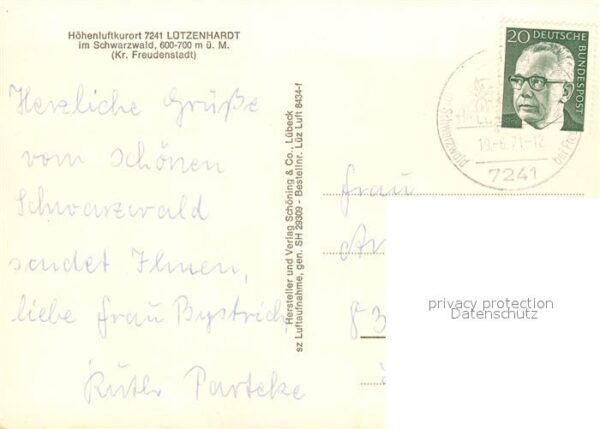 Höhenluftkurort 7241 LÜTZENHARDT
im Schwarzwald, 600-700 m ü. M.
(Kr. Freudenstadt)
Herzliche Grüße
vom schönen
Schwarzwald
sendet Ihnen,
liebe Frau Bystrich
Ruth Parteke
Hersteller und Verlag Schöning & Co., Lübeck
sz Luftaufnahme, gen. SH 29309 - Bestellnr. Lüz Luft 8434-f
20 DEUTSCHE BUNDESPOST
Schwarzwald
19.-6.71-12
7241
bei
Frau
83
privacy protection
Datenschutz